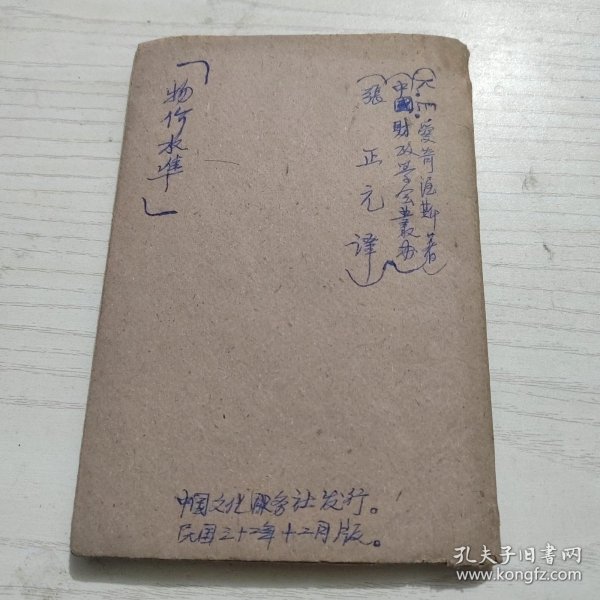 爱肯滔斯著
中國財政学会叢办
張正元译
「物价水準」
中国文化服务社发行。
民国三十二年十二月版。
孔夫子旧书网
www.kongfz.com